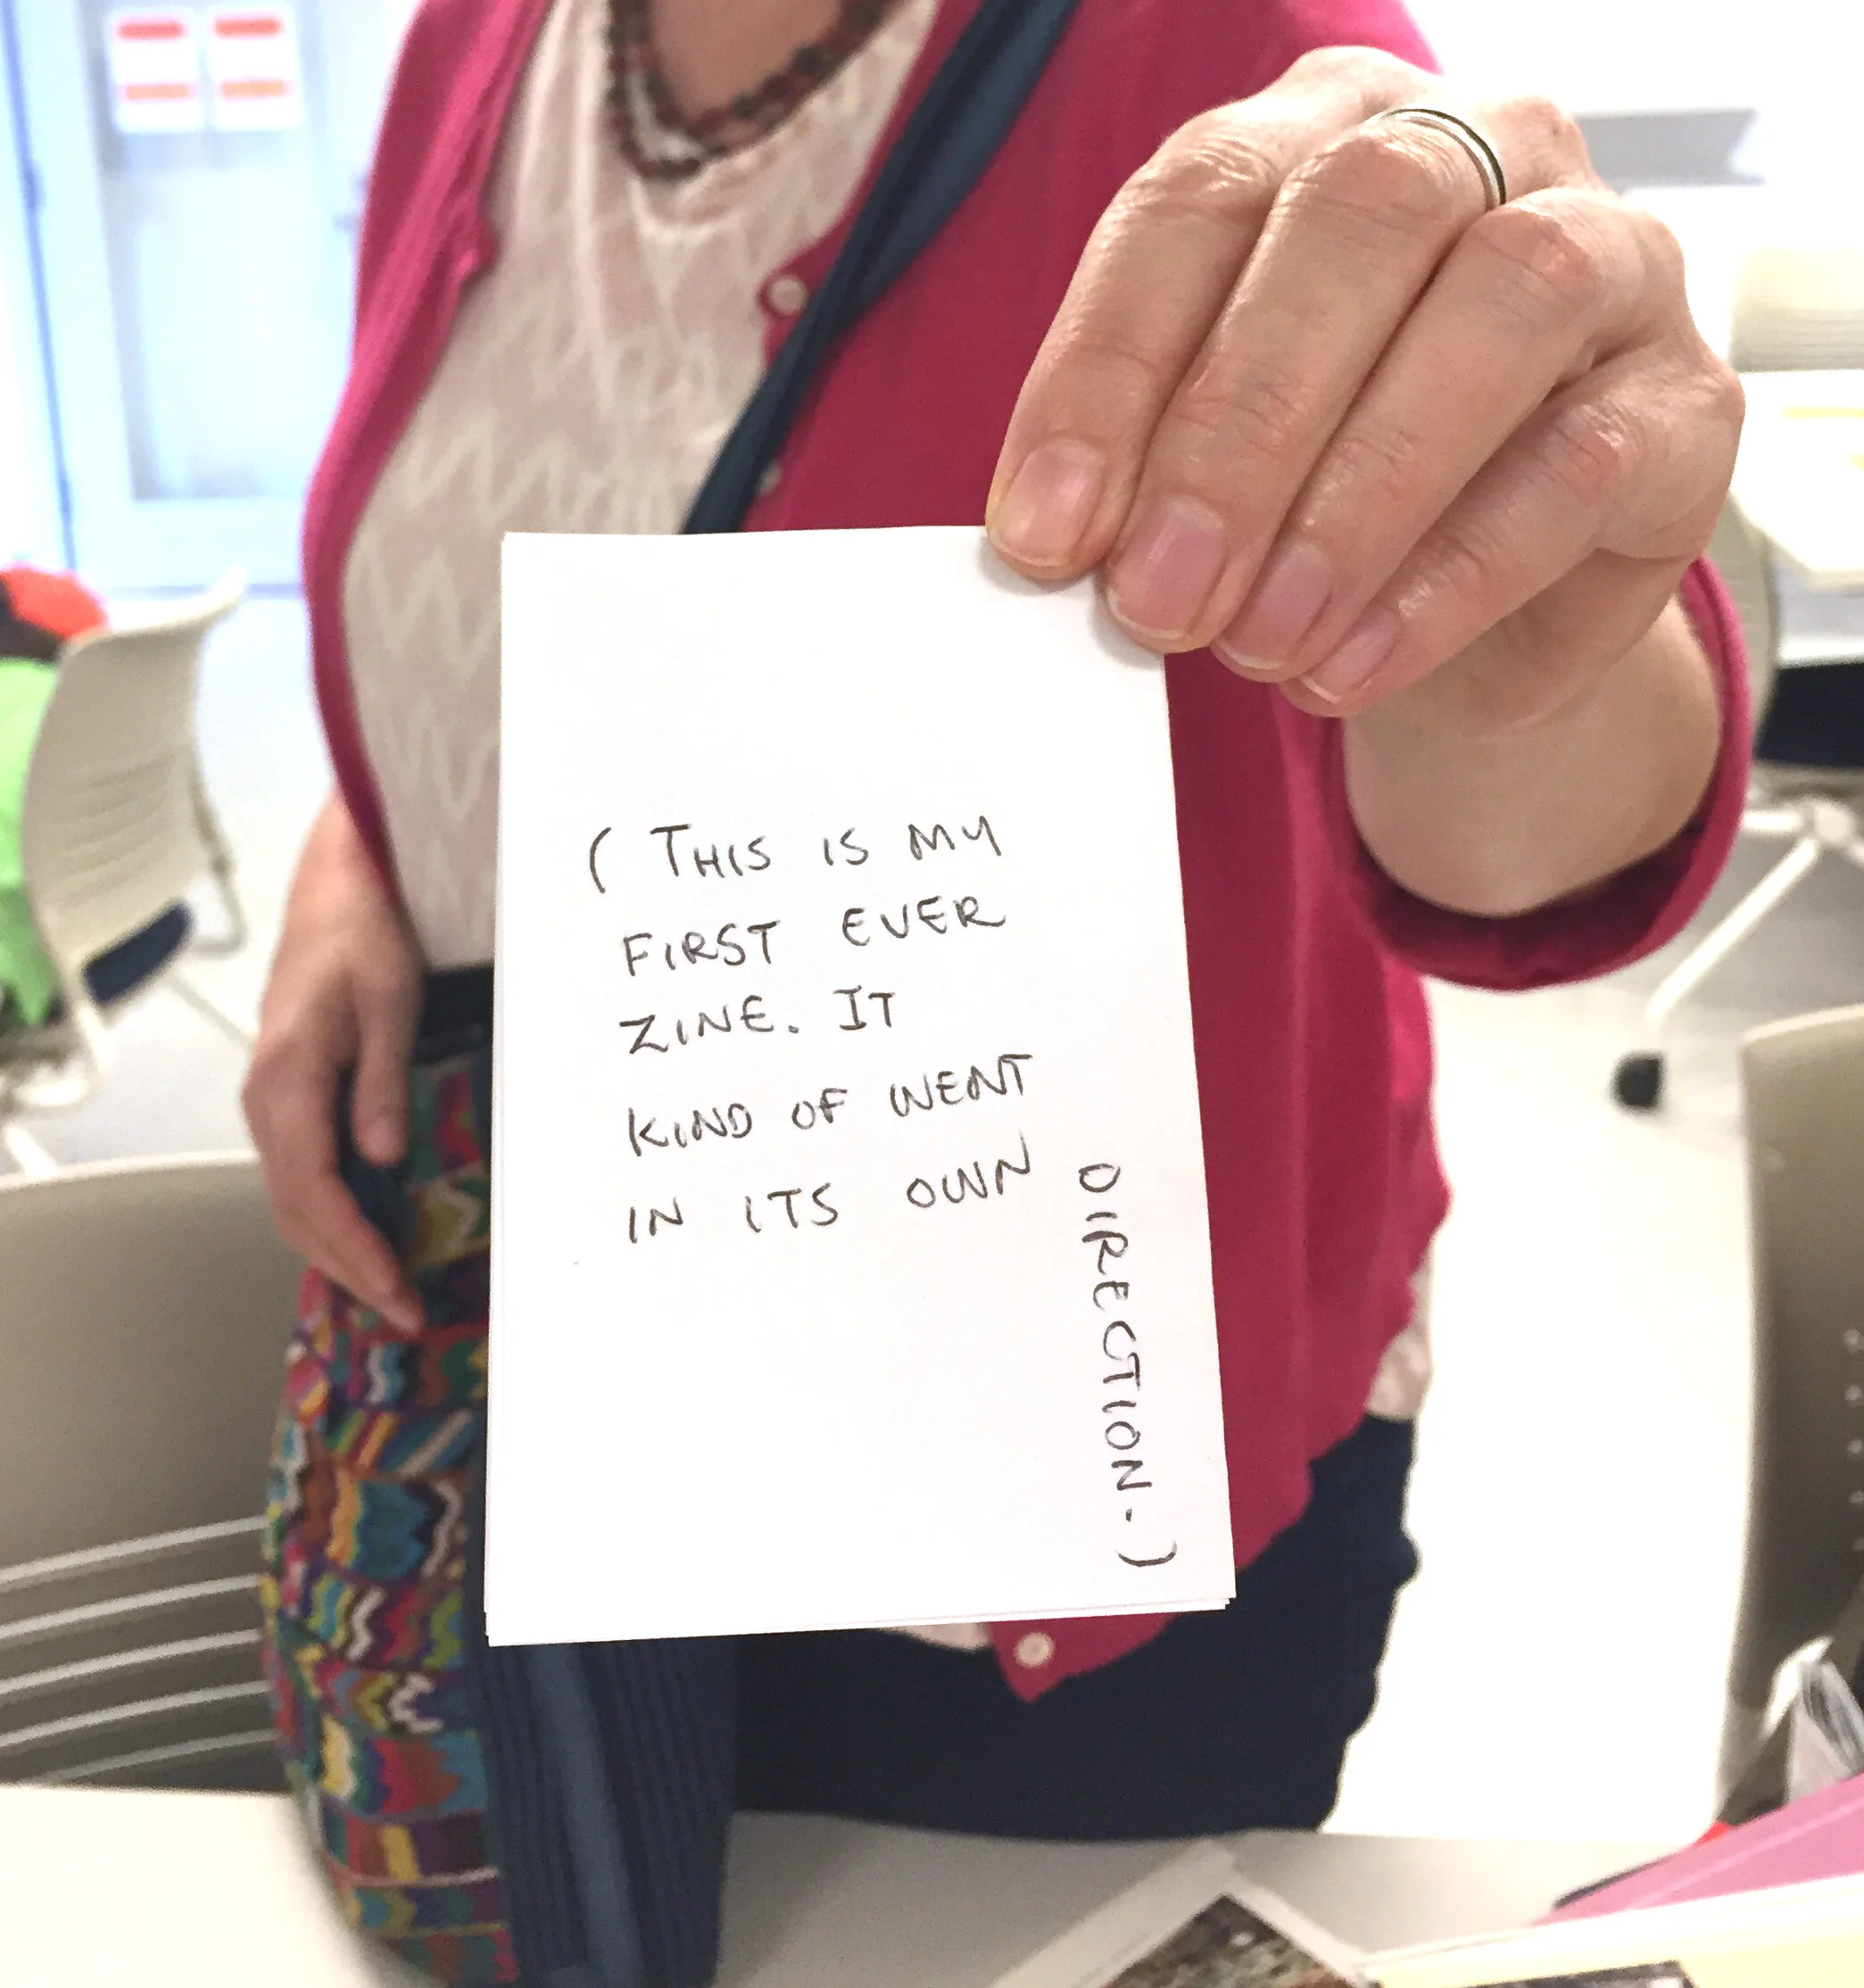 ( THIS IS MY
FIRST EVER
ZINE. IT
KIND OF WENT
IN ITS OWN
DIRECTION.)